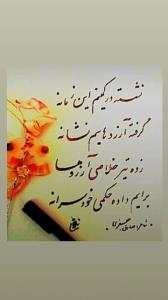 نشسته در کمینم این زمانه
گرفته آرزوهایم نشانه
زده تیر خلاصی آرزوها
برایم داده حکمی خودسرانه